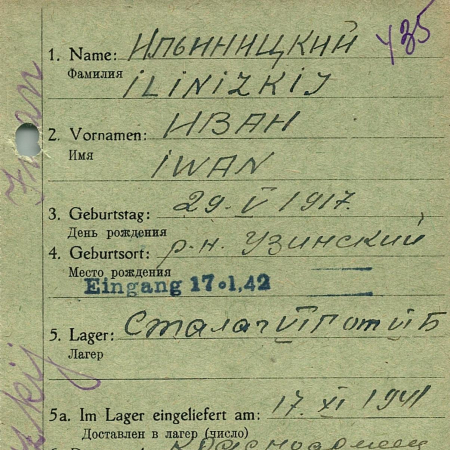 1. Name: Ильинницкий 435
Фамилия
iLiNiZKiJ
2. Vornamen: ИВАН
Имя
iWAN
3. Geburtstag: 29. V 1917.
День рождения
4. Geburtsort: р-н. Узинский
Место рождения
Eingang 17.1.42
5. Lager: Сталаг VI Г от VI Б
Лагер
5a. Im Lager eingeliefert am: 17. XI 1941
Доставлен в лагер (число)